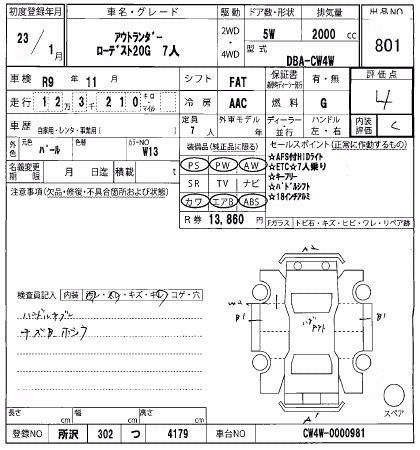 初度登録年月 車名・グレード 駆動 ドア数・形状 排気量 出品NO
23/1月 アウトランダー ローデスト20G 7人 2WD・4WD 5W 2000 cc 801
型式 DBA-CW4W
車検 R9年 11月 シフト FAT 保証書 有・無 評価点
走行 12万3千210 キロ・マイル 冷房 AAC 燃料 G 4
車歴 自家用・レンタ・事業用( ) 定員 7人 外車モデル 年 ディーラー・並行 ハンドル 左・右 内装評価 C
外色 元色 パール 色替 カラーNO W13 装備品(純正品に限る) セールスポイント(正常に作動するもの)
名義変更期限 月 日迄 積載 t PS PW AW ☆AFS付HIDライト
☆ETC☆7人乗り
注意事項(欠品・修復・不具合箇所および状態) SR TV ナビ ☆キーフリー
☆パドルシフト
カワ エアB ABS ☆18インチアルミ
R券 13,860 円 Fガラス トビ石・キズ・ヒビ・ワレ・リペア跡
A2
検査員記入 内装 キズ・コゲ・穴
W2
B1
B1
ハンドルスレ
キズB ホシウ
A1
スペア
長さ cm 幅 cm 高さ cm
登録NO 所沢 302 つ 4179 車台NO CW4W-0000981